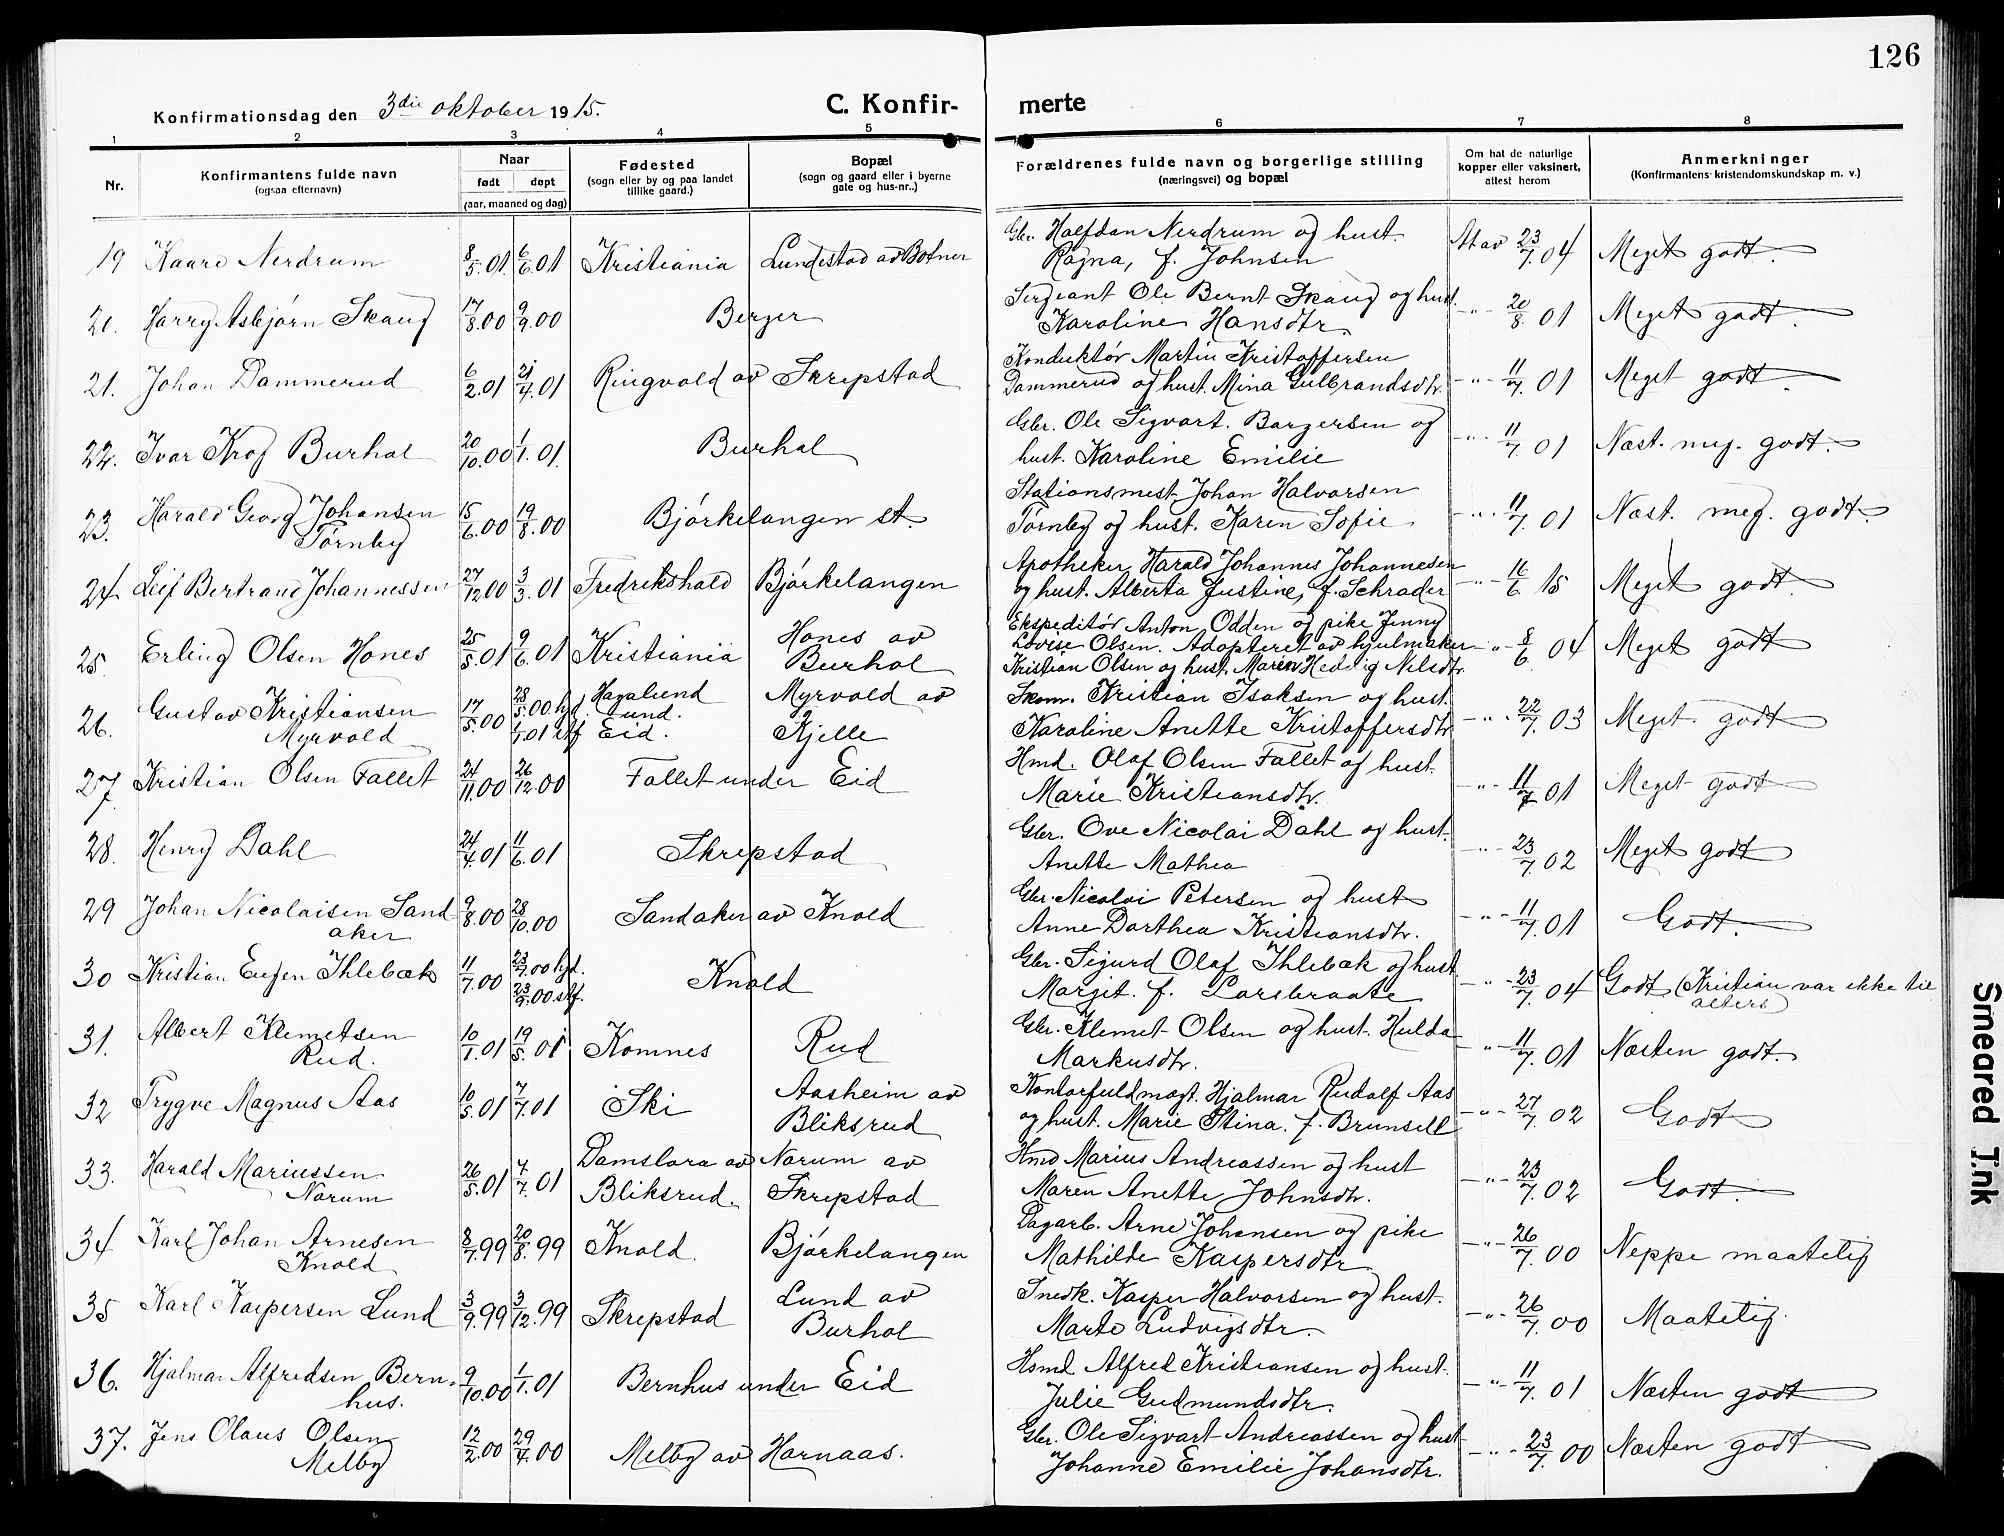 126
Konfirmationsdag den 3die oktober 1915. C. Konfir- merte
1 2 3 4 5 6 7 8
Nr. Konfirmantens fulde navn (ogsaa efternavn) Naar født døpt (aar, maaned og dag) Fødested (sogn eller by og paa landet tillike gaard.) Bopæl (sogn og gaard eller i byerne gate og hus-nr..) Forældrenes fulde navn og borgerlige stilling (næringsvei) og bopæl Om hat de naturlige kopper eller vaksinert, attest herom Anmerkninger (Konfirmantens kristendomskundskap m. v.)
19 Kaare Nerdrum 8/5.01. 6/6.01 Kristiania Lundestad av Botner Gbr. Halfdan Nerdrum og hust. Ragna, f. Johnsen At av 23/7.04 Meget godt.
20. Harry Asbjørn Skaug 17/8.00 9/9.00 Berger Sergeant Ole Bernt Skaug og hust. Karoline Hansdtr. -"- 20/8.01 Meget godt.
21. Johan Dammerud 6/2.01 21/4.01 Ringvold av Skrepstad Konduktør Martin Kristoffersen Dammerud og hust. Mina Gulbrandsdtr. -"- 11/7.01 Meget godt.
22. Ivar Krog Burhol 20/10.00 1/1.01. Burhol Gbr. Ole Sigvart. Borgersen og hust. Karoline Emilie -"- 11/7.01 Næst. meg. godt.
23. Harald Georg Johansen Tørnby 15/6.00 19/8.00 Bjørkelangen st Stationsmest. Johan Halvorsen Tørnby og hust. Karen Sofie -"- 11/7.01 Næst. meg. godt.
24 Leif Bertrand Johannessen 27/12.00 3/3.01 Fredrikshald Bjørkelangen Apotheker Harald Johannes Johannesen og hust. Alberta Justine, f. Schrader -"- 16/6.15 Meget godt.
25. Erling Olsen Hones 25/5.01 9/6.01 Kristiania Hones av Burhol Ekspeditør Anton Odden og pike Jenny Lovise Olsen. Adopteret av hjulmaker Kristian Olsen og hust. Maren Hedvig Nilsdtr. -"- 8/6.04 Meget godt
26. Gustav Kristiansen Myrvold 17/5.00 28/5.00 hjd. 1/1.01 stf. Hagalund und. Eid. Myrvold av Kjelle Skom. Kristian Isaksen og hust. Karoline Anette Kristoffersdtr -"- 22/7.03 Meget godt
27. Kristian Olsen Fallet 24/11.00 26/12.00 Fallet under Eid Hmd. Olaf Olsen Fallet og hust. Marie Kristiansdtr. -"- 11/7.01 Meget godt
28. Henry Dahl 24/4.01 11/6.01 Skrepstad Gbr. Ove Nicolai Dahl og hust. Anette Mathea -"- 23/7.02 Meget godt
29 Johan Nicolaisen Sandaker 9/8.00 28/10.00 Sandaker av Knold Gbr. Nicolai Petersen og hust Anne Dorthea Kristiansdtr. -"- 11/7.01 Godt.
30 Kristian Eugen Ihlebæk 11/7.00 23/7.00 hjd. 23/9.00 stf. Knold Gbr. Sigurd Olaf Ihlebæk og hust Margit. f. Larsbraate -"- 23/7.04 Godt (Kristian var ikke til alters)
31. Albert Klemetsen Rud. 10/1.01 19/5.01 Komnes Rud Gbr. Klemet Olsen og hust. Hulda Markusdtr. -"- 11/7.01 Næsten godt.
32 Trygve Magnus Aas 10/5.01 7/7.01 Ski Aasheim av Bliksrud Kontorfuldmægt. Hjalmar Rudolf Aas og hust. Marie Stina. f. Brunsell -"- 27/7.02 Godt
33. Harald Mariussen Norum 26/5.01 7/7.01 Damslora av Bliksrud. Norum av Skrepstad Hmd Marius Andreassen og hust Maren Anette Johnsdtr. -"- 23/7.02 Godt.
34 Karl Johan Arnesen Knold 8/7.99 20/8.99 Knold. Bjørkelangen Dagarb. Arne Johansen og pike Mathilde Kaspersdtr -"- 26/7.00 Neppe maatelig
35 Karl Kaspersen Lund 3/9.99 3/12.99 Skrepstad Lund av Burhol Snedk. Kasper Halvorsen og hust. Marte Ludvigsdtr. -"- 26/7.00 Maatelig.
36. Hjalmar Alfredsen Bernhus. 9/10.00 1/1.01 Bernhus under Eid Hsmd Alfred Kristiansen og hust. Julie Gudmundsdtr. -"- 11/7.01 Næsten godt
37. Jens Olaus Olsen Melby 12/2.00 29/4.00 Melby av Harnaas. Gbr. Ole Sigvart Andreassen og hust Johanne Emilie Johansdtr. -"- 23/7.00 Næsten godt
Smeared Ink